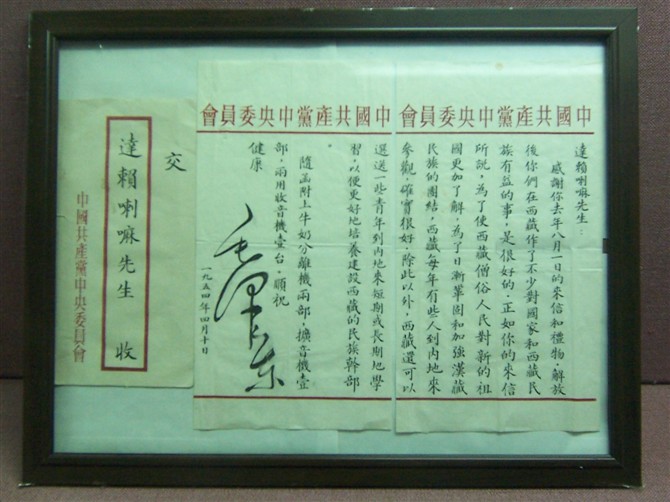 中國共產黨中央委員會
達賴喇嘛先生：
感謝你去年八月一日的來信和禮物。解放
後你們在西藏作了不少對國家和西藏民
族有益的事，是很好的。正如你的來信
所說，為了使西藏僧俗人民對新的祖
國更加了解，為了日漸鞏固和加強漢藏
民族的團結，西藏每年有些人到內地來
參觀，確實很好。除此以外，西藏還可以
中國共產黨中央委員會
選送一些青年到內地來短期或長期地學
習，以便更好地培養建設西藏的民族幹部
隨函附上牛奶分離機兩部，擴音機壹
部，兩用收音機壹台。順祝
健康
毛澤東
一九五四年四月十日
交
達賴喇嘛先生 收
中國共產黨中央委員會